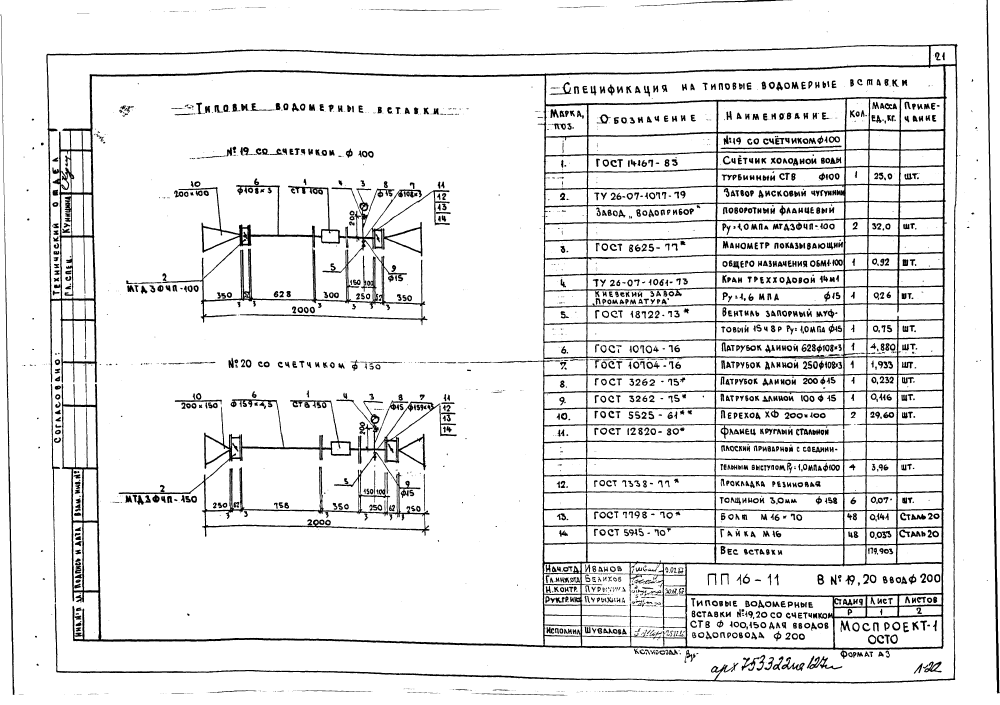 21
Типовые водомерные вставки
№19 со счетчиком ф 100
10
200×100
6
ф108×3
1
СТВ 100
4
3
8
ф15
7
ф108×3
11
12
13
14
200
2
МТДЗФЧП-100
5
9
ф15
150 100
350
3
52
3
628
300
3
250
52
3
350
2000
№20 со счетчиком ф 150
10
200×150
6
ф159×4,5
1
СТВ 150
4
3
8
ф15
7
11
12
13
14
200
2
МТДЗФЧП-150
5
9
ф15
150 100
250
3
62
3
758
350
3
250
62
3
250
2000
Спецификация на типовые водомерные вставки
Марка, поз. Обозначение Наименование Кол. Масса ед., кг. Примечание
№19 со счётчиком ф100
1. ГОСТ 14167-83 Счётчик холодной воды
турбинный СТВ ф100 1 25,0 шт.
2. ТУ 26-07-1077-79 Затвор дисковый чугунный
Завод „Водоприбор" поворотный фланцевый
Ру=1,0 мпа МТДЗФЧП-100 2 32,0 шт.
3. ГОСТ 8625-77* Манометр показывающий
общего назначения ОБМ1-100 1 0,92 шт.
4. ТУ 26-07-1061-73 Кран трехходовой 14М1
Киевский завод „Промарматура" Ру=1,6 мпа ф15 1 0,26 шт.
5. ГОСТ 18722-73* Вентиль запорный муф-
товый 15ч8р Ру=1,0мпа ф15 1 0,75 шт.
6. ГОСТ 10704-76 Патрубок длиной 628ф108×3 1 4,880 шт.
7. ГОСТ 10704-76 Патрубок длиной 250ф108×3 1 1,933 шт.
8. ГОСТ 3262-75* Патрубок длиной 200 ф15 1 0,232 шт.
9. ГОСТ 3262-75* Патрубок длиной 100 ф 15 1 0,116 шт.
10. ГОСТ 5525-61** Переход ХФ 200×100 2 29,60 шт.
11. ГОСТ 12820-80* Фланец круглый стальной
плоский приварной с соедини-
тельным выступом, Ру=1,0мпа ф100 4 3,96 шт.
12. ГОСТ 7338-77* Прокладка резиновая
толщиной 3,0мм ф158 6 0,07 шт.
13. ГОСТ 7798-70* Болт М16×70 48 0,141 Сталь 20
14 ГОСТ 5915-70* Гайка М16 48 0,033 Сталь 20
Вес вставки 179,903
Нач.отд. Иванов
Гл.инж.отд Белихов
Н.контр. Пурыхина
Рук.гр.инж Пурыхина
Исполнил Шувалова
ПП 16-11
В №19,20 ввод ф 200
Типовые водомерные
вставки №19,20 со счетчиком
СТВ ф 100,150 для вводов
водопровода ф 200
Стадия Лист Листов
Р 1 2
Моспроект-1
ОСТО
Копировал:
Формат А3
Технический отдел
Гл. спец. Куницына
Согласовано:
Взам. инв. №
Подпись и дата